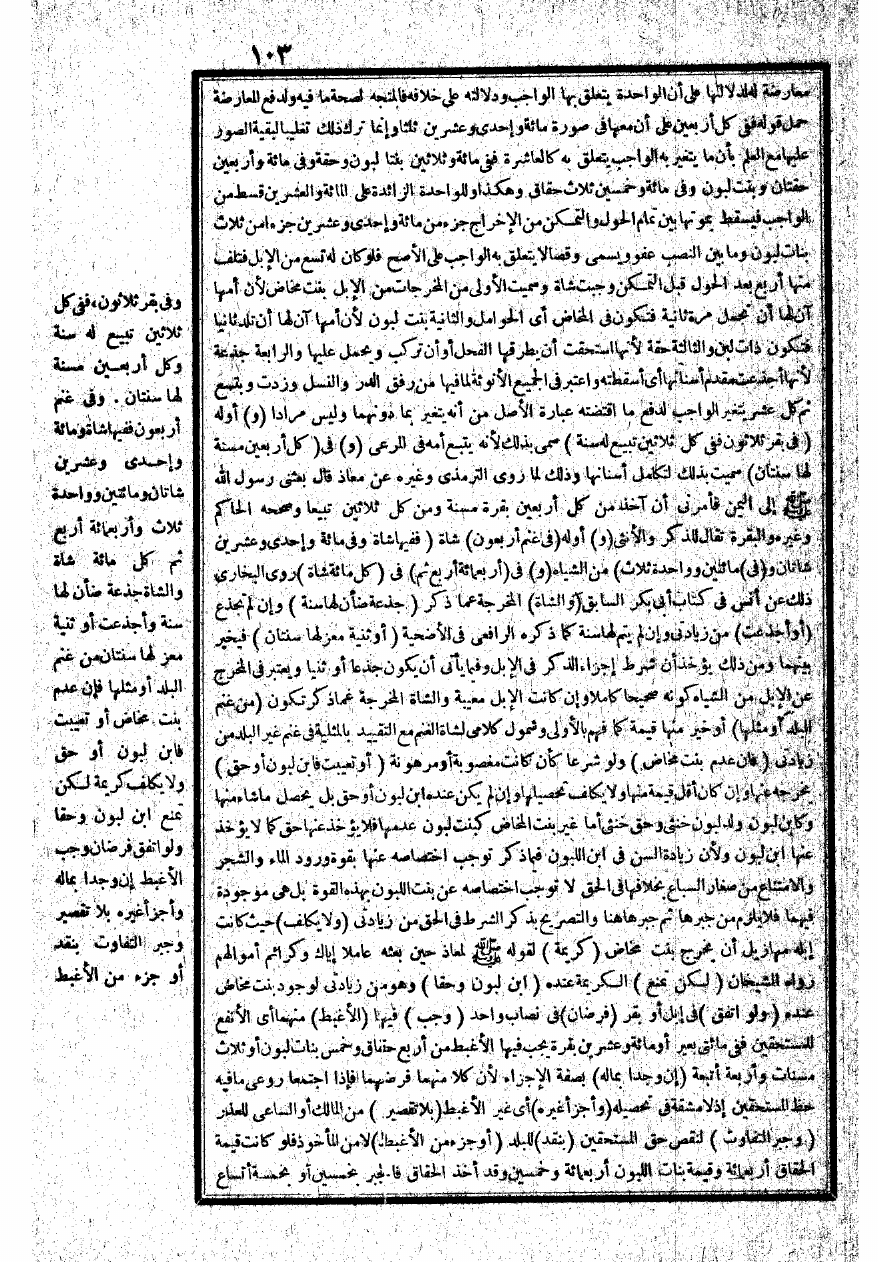 ١٠٣
معارضة له لدلالتها على أن الواحدة يتعلق بها الواجب ودلالته على خلافه فالمتجه لصحة ما فيه ولدفع المعارضة
حمل قوله ففي كل أربعين على أن معها في صورة مائة وإحدى وعشرين ثلثا وإنما ترك ذلك تغليبا لبقية الصور
عليها مع العلم بأن ما يتغير به الواجب يتعلق به كالعاشرة ففي مائة وثلاثين بنتا لبون وحقة وفي مائة وأربعين
حقتان وبنت لبون وفي مائة وخمسين ثلاث حقاق وهكذا وللواحدة الزائدة على المائة والعشرين قسط من
الواجب فيسقط بموتها بين تمام الحول والتمكن من الإخراج جزء من مائة وإحدى وعشرين جزءا من ثلاث
بنات لبون وما بين النصب عفو ويسمى وقصا لا يتعلق به الواجب على الأصح فلو كان له تسع من الإبل فتلف
منها أربع بعد الحول قبل التمكن وجبت شاة وسميت الأولى من المخرجات من الإبل بنت مخاض لأن أمها
آن لها أن تحمل مرة ثانية فتكون في المخاض أي الحوامل والثانية بنت لبون لأن أمها آن لها أن تلد ثانيا
فتكون ذات لبن والثالثة حقة لأنها استحقت أن يطرقها الفحل أو أن تركب ويحمل عليها والرابعة جذعة
لأنها أجذعت مقدم أسنانها أي أسقطته واعتبر في الجميع الأنوثة لما فيها من رفق الدر والنسل وزدت وبتسع
ثم كل عشر يتغير الواجب لدفع ما اقتضته عبارة الأصل من أنه يتغير بما دونهما وليس مرادا (و) أوله
( في بقر ثلاثون ففي كل ثلاثين تبيع له سنة ) سمى بذلك لأنه يتبع أمه في المرعى (و) في( كل أربعين مسنة
لها سنتان) سميت بذلك لتكامل أسنانها وذلك لما روى الترمذي وغيره عن معاذ قال بعثني رسول الله
ﷺ إلى اليمن فأمرني أن آخذ من كل أربعين بقرة مسنة ومن كل ثلاثين تبيعا وصححه الحاكم
وغيره والبقرة تقال للذكر والأنثى (و) أوله (في غنم أربعون) شاة ( ففيها شاة وفي مائة وإحدى وعشرين
شاتان و(في) مائتين وواحدة ثلاث) من الشياه (و) في (أربعمائة أربع ثم) في ( كل مائة شاة ) روى البخاري
ذلك عن أنس في كتاب أبي بكر السابق (والشاة) المخرجة عما ذكر ( جذعة ضأن لها سنة ) وإن لم تجذع
(أو أجذعت) من زيادتي وإن لم يتم لها سنة كما ذكره الرافعي في الأضحية ( أو ثنية معز لها سنتان ) فيخير
بينهما ومن ذلك يؤخذ أن شرط إجزاء الذكر في الإبل وفيما يأتي أن يكون جذعا أو ثنيا ويعتبر في المخرج
عن الإبل من الشياه كونه صحيحا كاملا وإن كانت الإبل معيبة والشاة المخرجة عما ذكر تكون (من غنم
البلد أو مثلها) أو خير منها قيمة كما فهم بالأولى وشمول كلامي لشاة الغنم مع التقييد بالمثلية في غنم غير البلد من
زيادتي ( فإن عدم بنت مخاض ) ولو شرعا كأن كانت مغصوبة أو مرهونة ( أو تعيبت فابن لبون أو حق )
يخرجه عنها وإن كان أقل قيمة منها ولا يكلف تحصيلها وإن لم يكن عنده ابن لبون أو حق بل يحصل ما شاء منها
وكابن لبون ولد لبون خنثى وحق خنثى أما غير بنت المخاض كبنت لبون عدمها فلا يؤخذ عنها حق كما لا يؤخذ
عنها ابن لبون ولأن زيادة السن في ابن اللبون فيما ذكر توجب اختصاصه عنها بقوة ورود الماء والشجر
والامتناع من صغار السباع بخلافها في الحق لا توجب اختصاصه عن بنت اللبون بهذه القوة بل هي موجودة
فيهما فلا يلزم من جبرها ثم جبرها هنا والتصريح بذكر الشرط في الحق من زيادتي (ولا يكلف) حيث كانت
إبله مهازيل أن يخرج بنت مخاض ( كريمة ) لقوله ﷺ لمعاذ حين بعثه عاملا إياك وكرائم أموالهم
رواه الشيخان ( لكن تمنع ) الكريمة عنده ( ابن لبون وحقا ) وهو من زيادتي لوجود بنت مخاض
عنده ( ولو اتفق )في إبل أو بقر (فرضان) في نصاب واحد ( وجب ) فيها (الأغبط) منهما أي الأنفع
للمستحقين ففي مائتي بعير أو مائة وعشرين بقرة يجب فيها الأغبط من أربع حقاق وخمس بنات لبون أو ثلاث
مسنات وأربعة أتبعة (إن وجدا بماله) بصفة الإجزاء لأن كلا منهما فرضهما فإذا اجتمعا روعي ما فيه
حظ المستحقين إذ لا مشقة في تحصيله (وأجزأ غيره) أي غير الأغبط (بلا تقصير ) من المالك أو الساعي للعذر
( وجبر التفاوت ) لنقص حق المستحقين (بنقد) للبلد ( أو جزء من الأغبط) لا من المأخوذ فلو كانت قيمة
الحقاق أربعمائة وقيمة بنات اللبون أربعمائة وخمسين وقد أخذ الحقاق فالجبر بخمسين أو بخمسة أتساع
وفي بقر ثلاثون، ففي كل
ثلاثين تبيع له سنة
وكل أربعين مسنة
لها سنتان . وفي غنم
أربعون ففيها شاة ومائة
وإحدى وعشرين
شاتان ومائتين وواحدة
ثلاث وأربعمائة أربع
ثم كل مائة شاة
والشاة جذعة ضأن لها
سنة وأجذعت أو ثنية
معز لها سنتان من غنم
البلد أو مثلها فإن عدم
بنت مخاض أو تعيبت
فابن لبون أو حق
ولا يكلف كريمة لكن
تمنع ابن لبون وحقا
ولو اتفق فرضان وجب
الأغبط إن وجدا بماله
وأجزأ غيره بلا تقصير
وجبر التفاوت بنقد
أو جزء من الأغبط